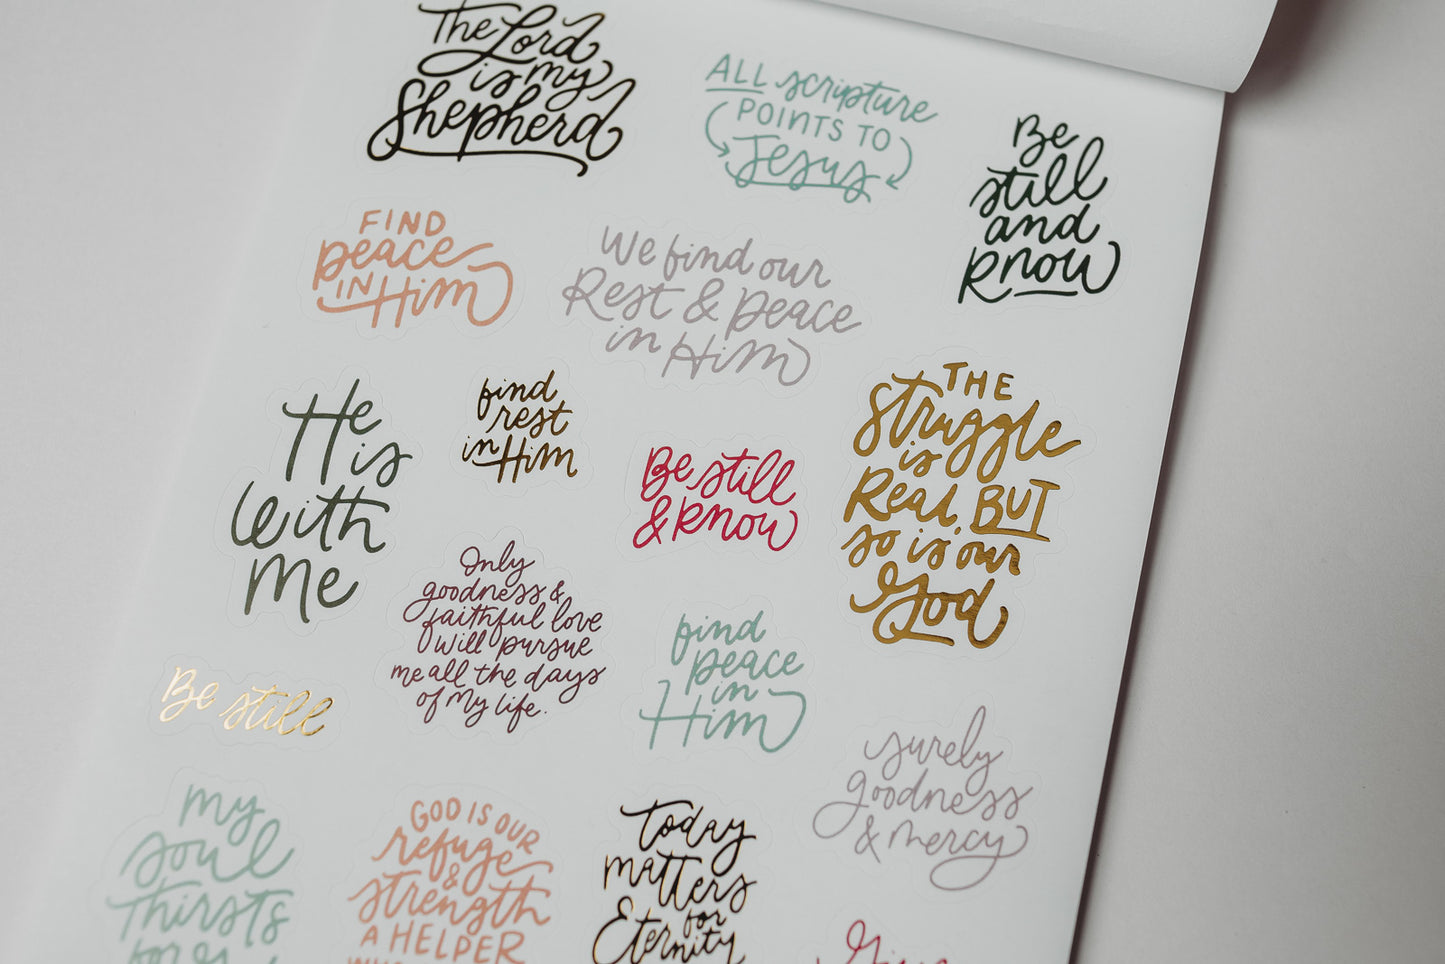 The Lord
is my
Shepherd
ALL scripture
POINTS TO
Jesus
Be
still
and
know
FIND
peace
IN Him
We find our
Rest & peace
in Him
He
is
with
me
find
rest
in Him
Be still
& know
THE
Struggle
is
Real, BUT
so is our
God
Only
goodness &
faithful love
will pursue
me all the days
of my life.
find
peace
in
Him
Be still
surely
goodness
& mercy
my
soul
Thirsts
for
GOD IS OUR
refuge
&
strength
A HELPER
Today
matters
for
Eternity